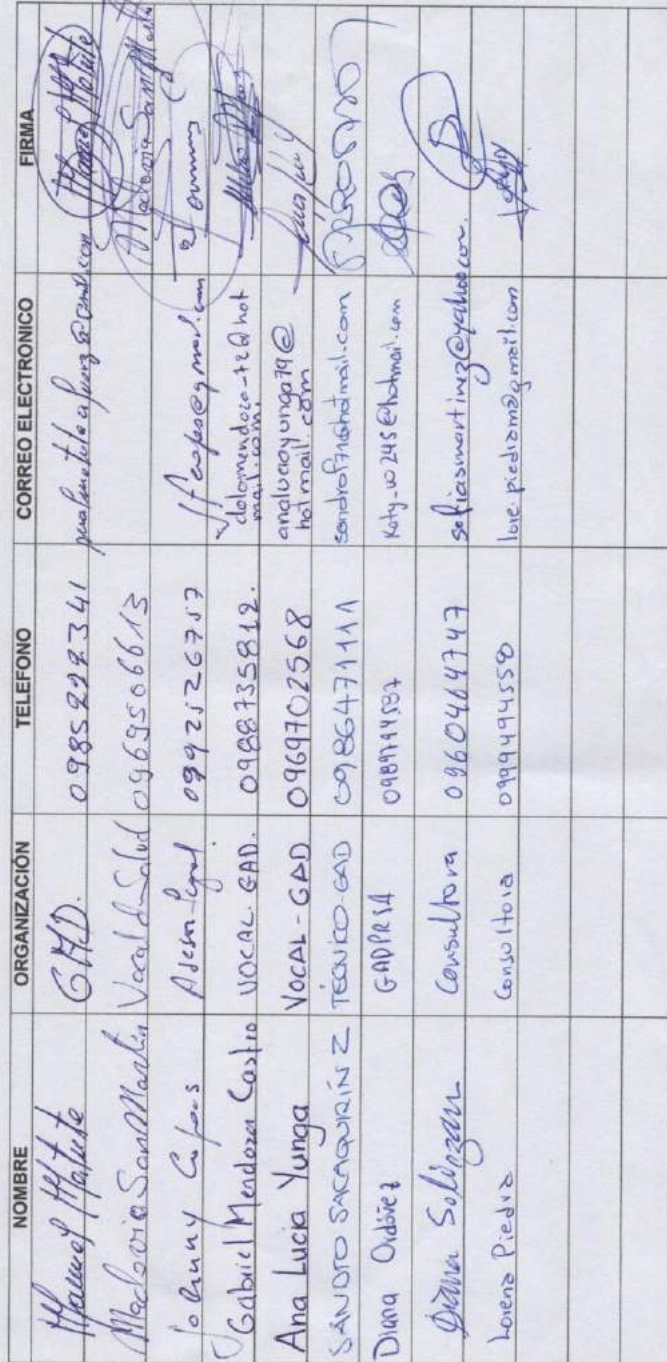 NOMBRE ORGANIZACIÓN TELEFONO CORREO ELECTRONICO FIRMA
Manuel Matute GAD. 0985292341 Manuel Matute
Maclovia San Martín Vocal de Salud 0969506613 Maclovia San Martín
Johnny Asesor Legal. 0992526757
Gabriel Mendoza Castro VOCAL GAD. 0988735812.
Ana Lucia Yunga VOCAL - GAD 0969702568 analucayunga79@
hotmail.com
SANDRO SACAQUIRÍN Z TECNICO-GAD 0986471111
Diana Ordóñez GADPRSA 0989744587 Katy_w245@hotmail.com
Diana Solórzano Consultora 0960464747 sofiasmartinez@yahoo.com.
Lorena Piedra Consultora 0999494558 lore.piedram@gmail.com